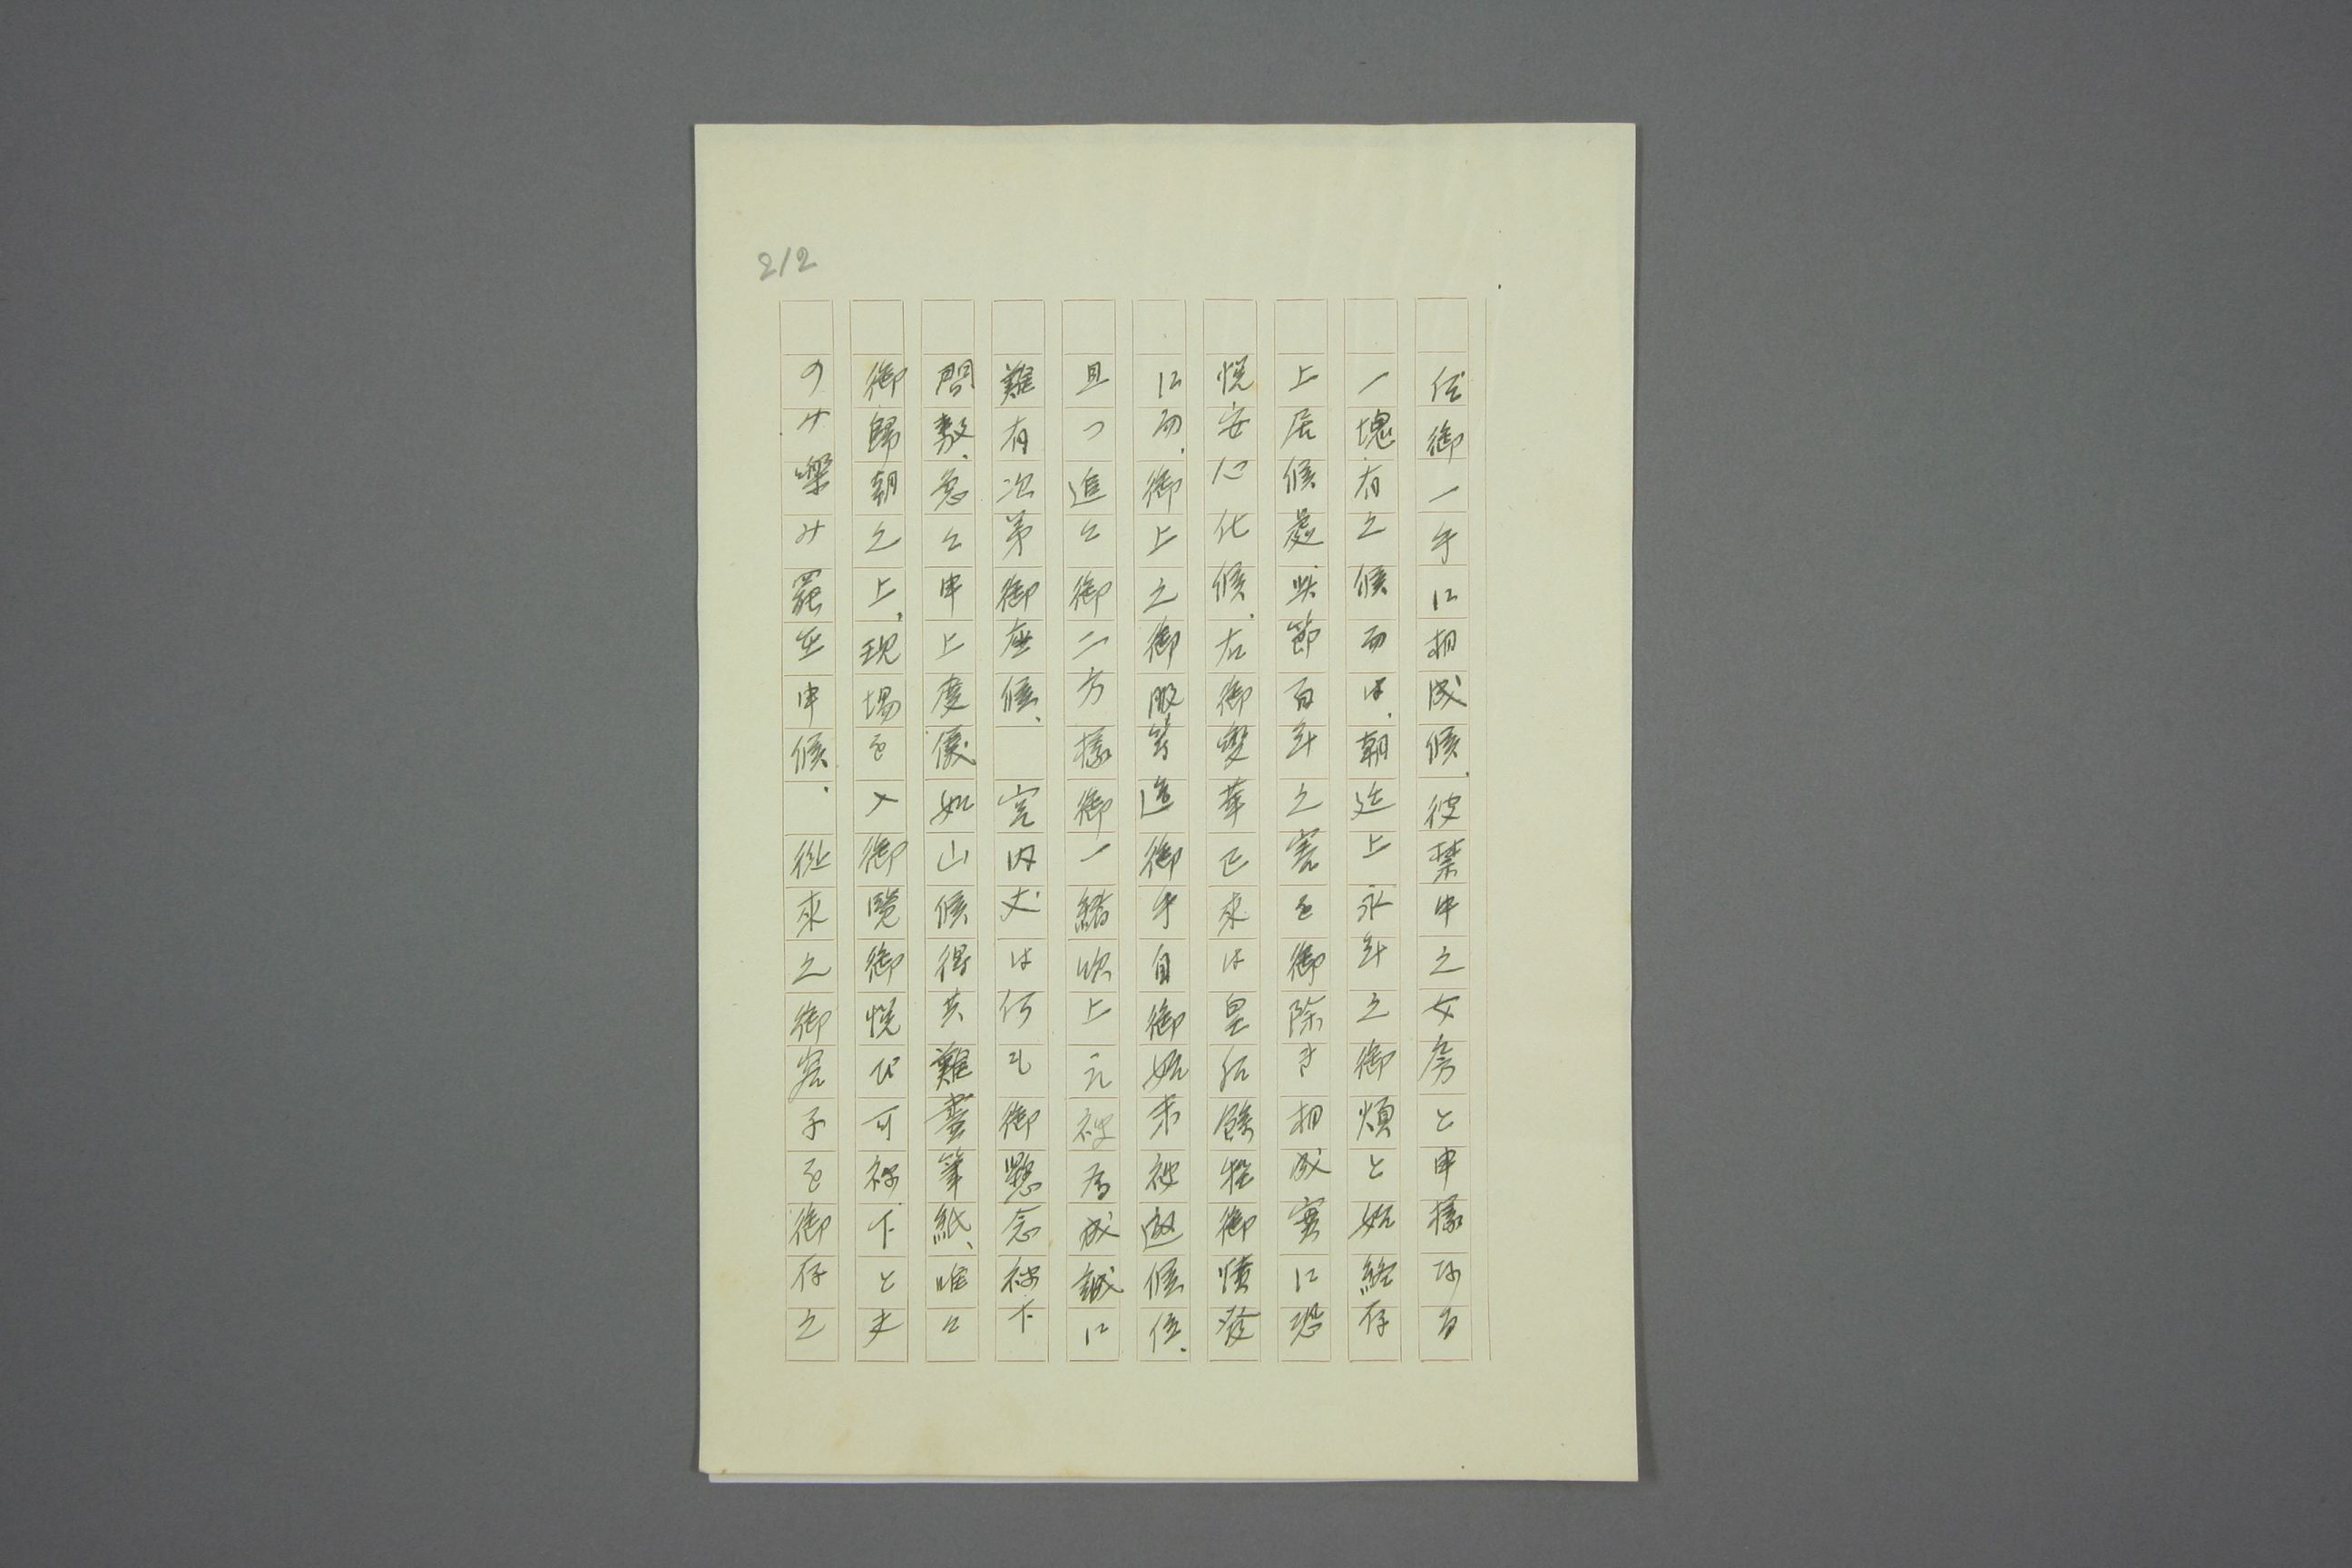 212
任御一手に相成候、彼禁中之女房と申様なる
一塊有之候而は、朝廷上永年之御煩と始終存
上居候處、此節百年之害を御除き相成実に恐
悦安心化候、右御變革已来は皇后餘程御憤發
に而、御上之御服等迄御手自御始末被遊候位、
且つ追々御二方様御一緒吹上え被為成誠に
難有次第御座候、 宮内丈は何も御懸念被下
間敷、急々申上度儀如山候得共難盡筆紙、唯々
御歸朝之上、現場を入御覽御悦び可被下と夫
のみ樂み罷在申候、 從来之御客子を御存之